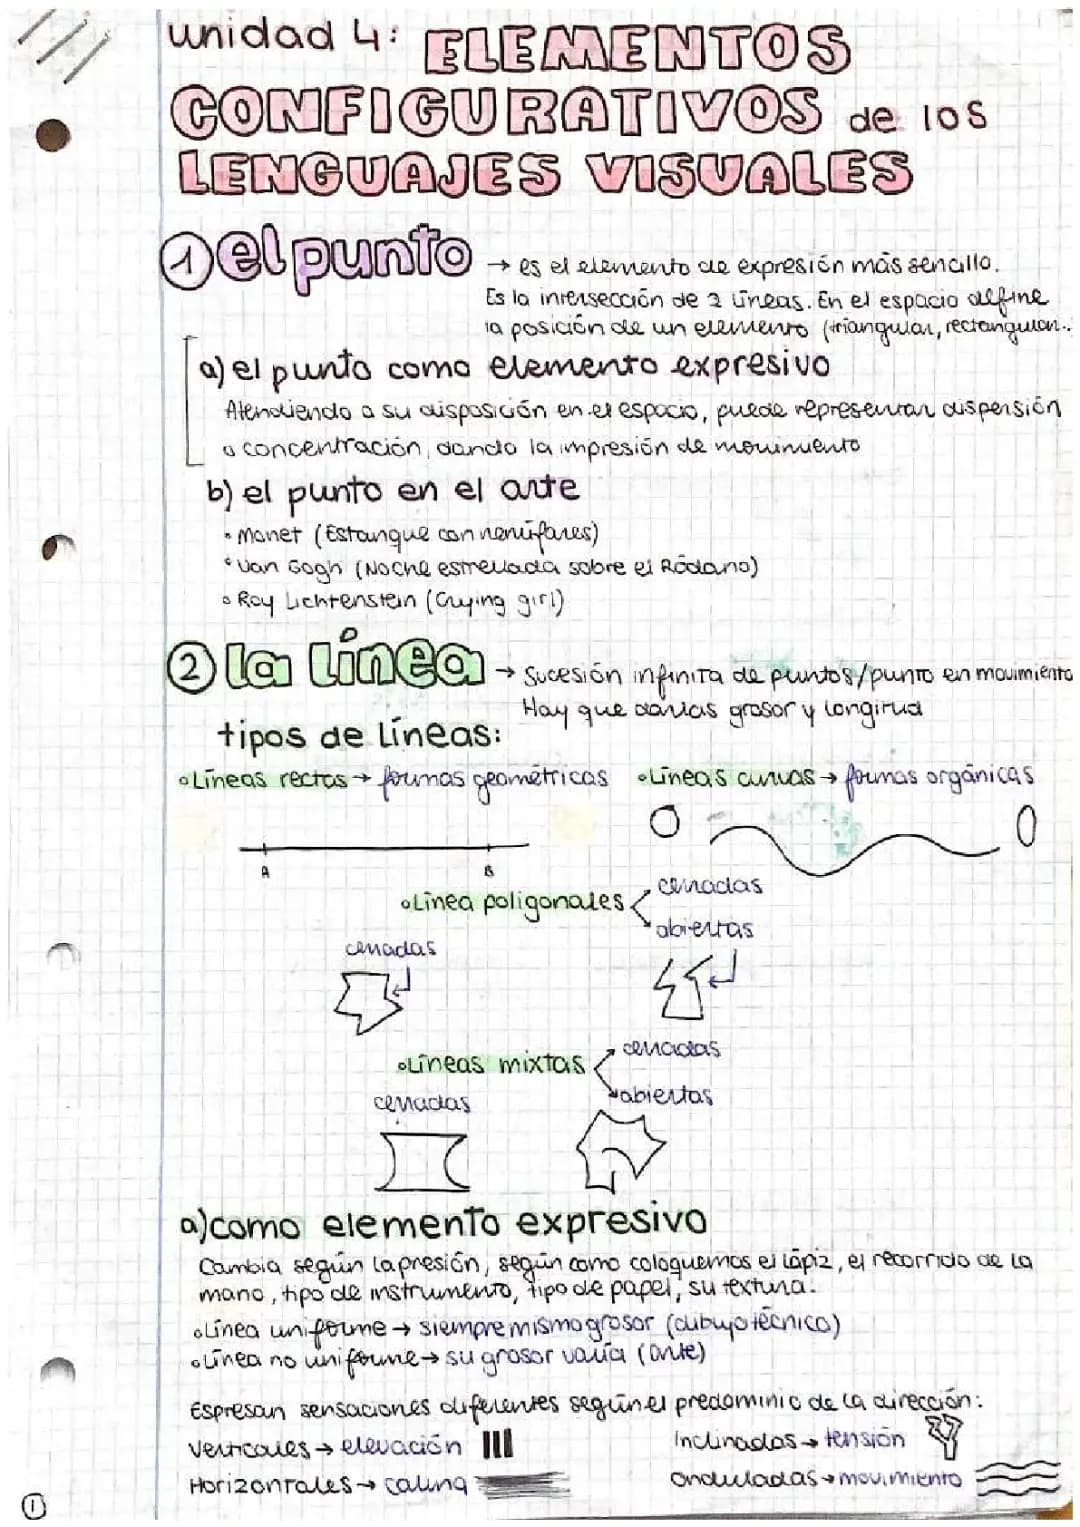 unidad 4: ELEMENTOS
CONFIGURATIVOS de los
LENGUAJES VISUALES
1 el punto → es el elemento de expresión más sencillo.
Es la intersección de 2 líneas. En el espacio define
la posición de un elemento (triangular, rectangular...
a) el punto como elemento expresivo
Atendiendo a su disposición en el espacio, puede representar dispersión
o concentración, dando la impresión de movimiento
b) el punto en el arte
• Monet (Estanque con nenúfares)
• Van Gogh (Noche estrellada sobre el Ródano)
• Roy Lichtenstein (Crying girl)
2 la línea → Sucesión infinita de puntos/punto en movimiento
Hay que darlas grosor y longitud
tipos de líneas:
• Líneas rectas → formas geométricas • Líneas curvas → formas orgánicas
A B
• Línea poligonales cerradas
abiertas
cerradas
• Líneas mixtas cerradas
abiertas
cerradas
a) como elemento expresivo
Cambia según la presión, según como coloquemos el lápiz, el recorrido de la
mano, tipo de instrumento, tipo de papel, su textura.
• Línea uniforme → siempre mismo grosor (dibujo técnico)
• Línea no uniforme → su grosor varía (arte)
Espresan sensaciones diferentes según el predominio de la dirección:
Verticales → elevación Inclinadas → tensión
Horizontales → calma Onduladas → movimiento
1